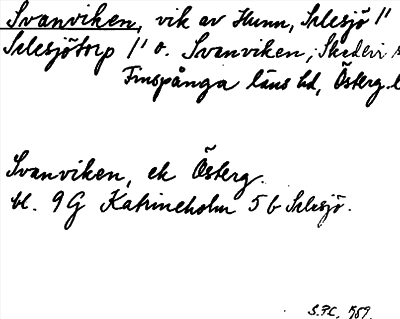 Svanviken, vik av Hunn, Slesjö 1"
Slesjötorp 1" o. Svanviken, Skedevi s
Finspånga läns hd, Österg. l
Svanviken, ek Österg.
bl. 9 G Katrineholm 5 b Slesjö.
1959.